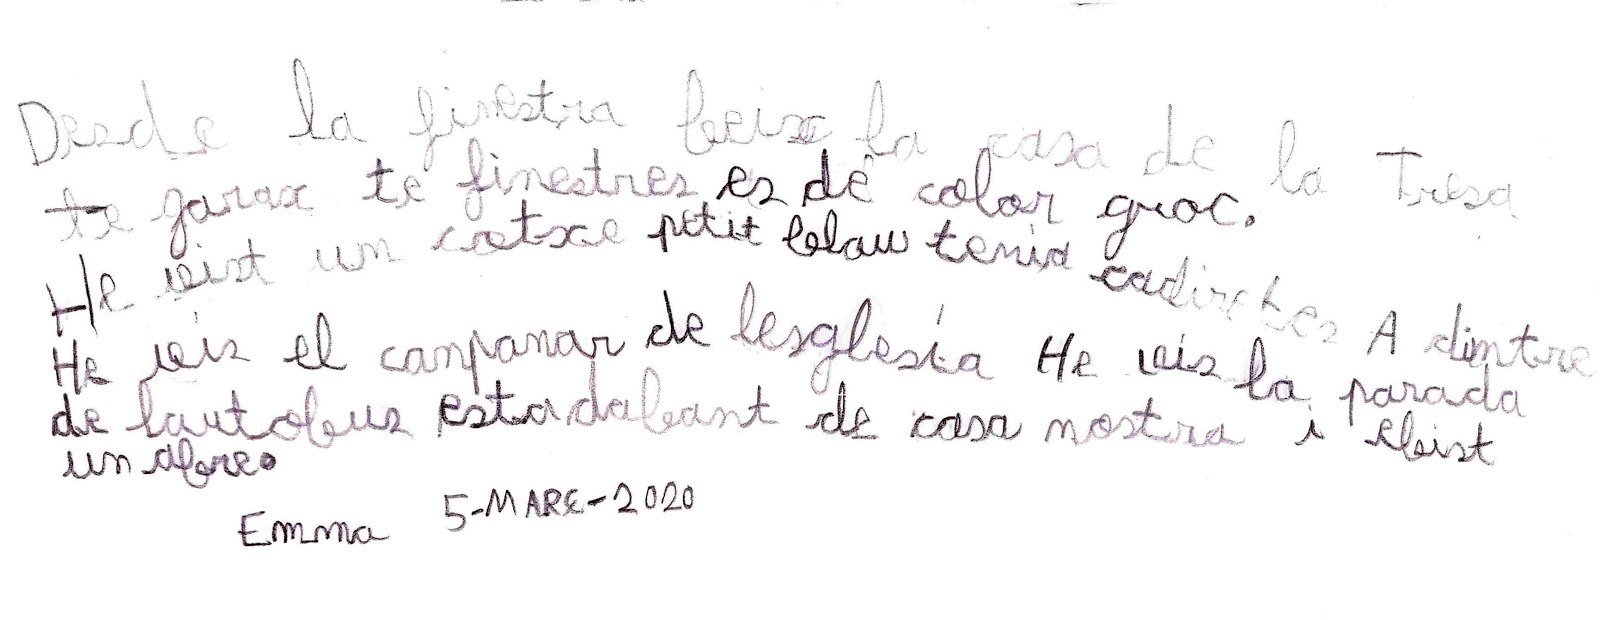 Desde la finestra beix la casa de la Tresa
te garax té finestres es de color groc.
He vist un cotxe petit blau tenia cadiretes A dintre
He vis el canpanar de lesglesía He vis la parada
de lautobus esta dabant de casa nostra i ebist
un abre.
Emma 5-MARÇ-2020